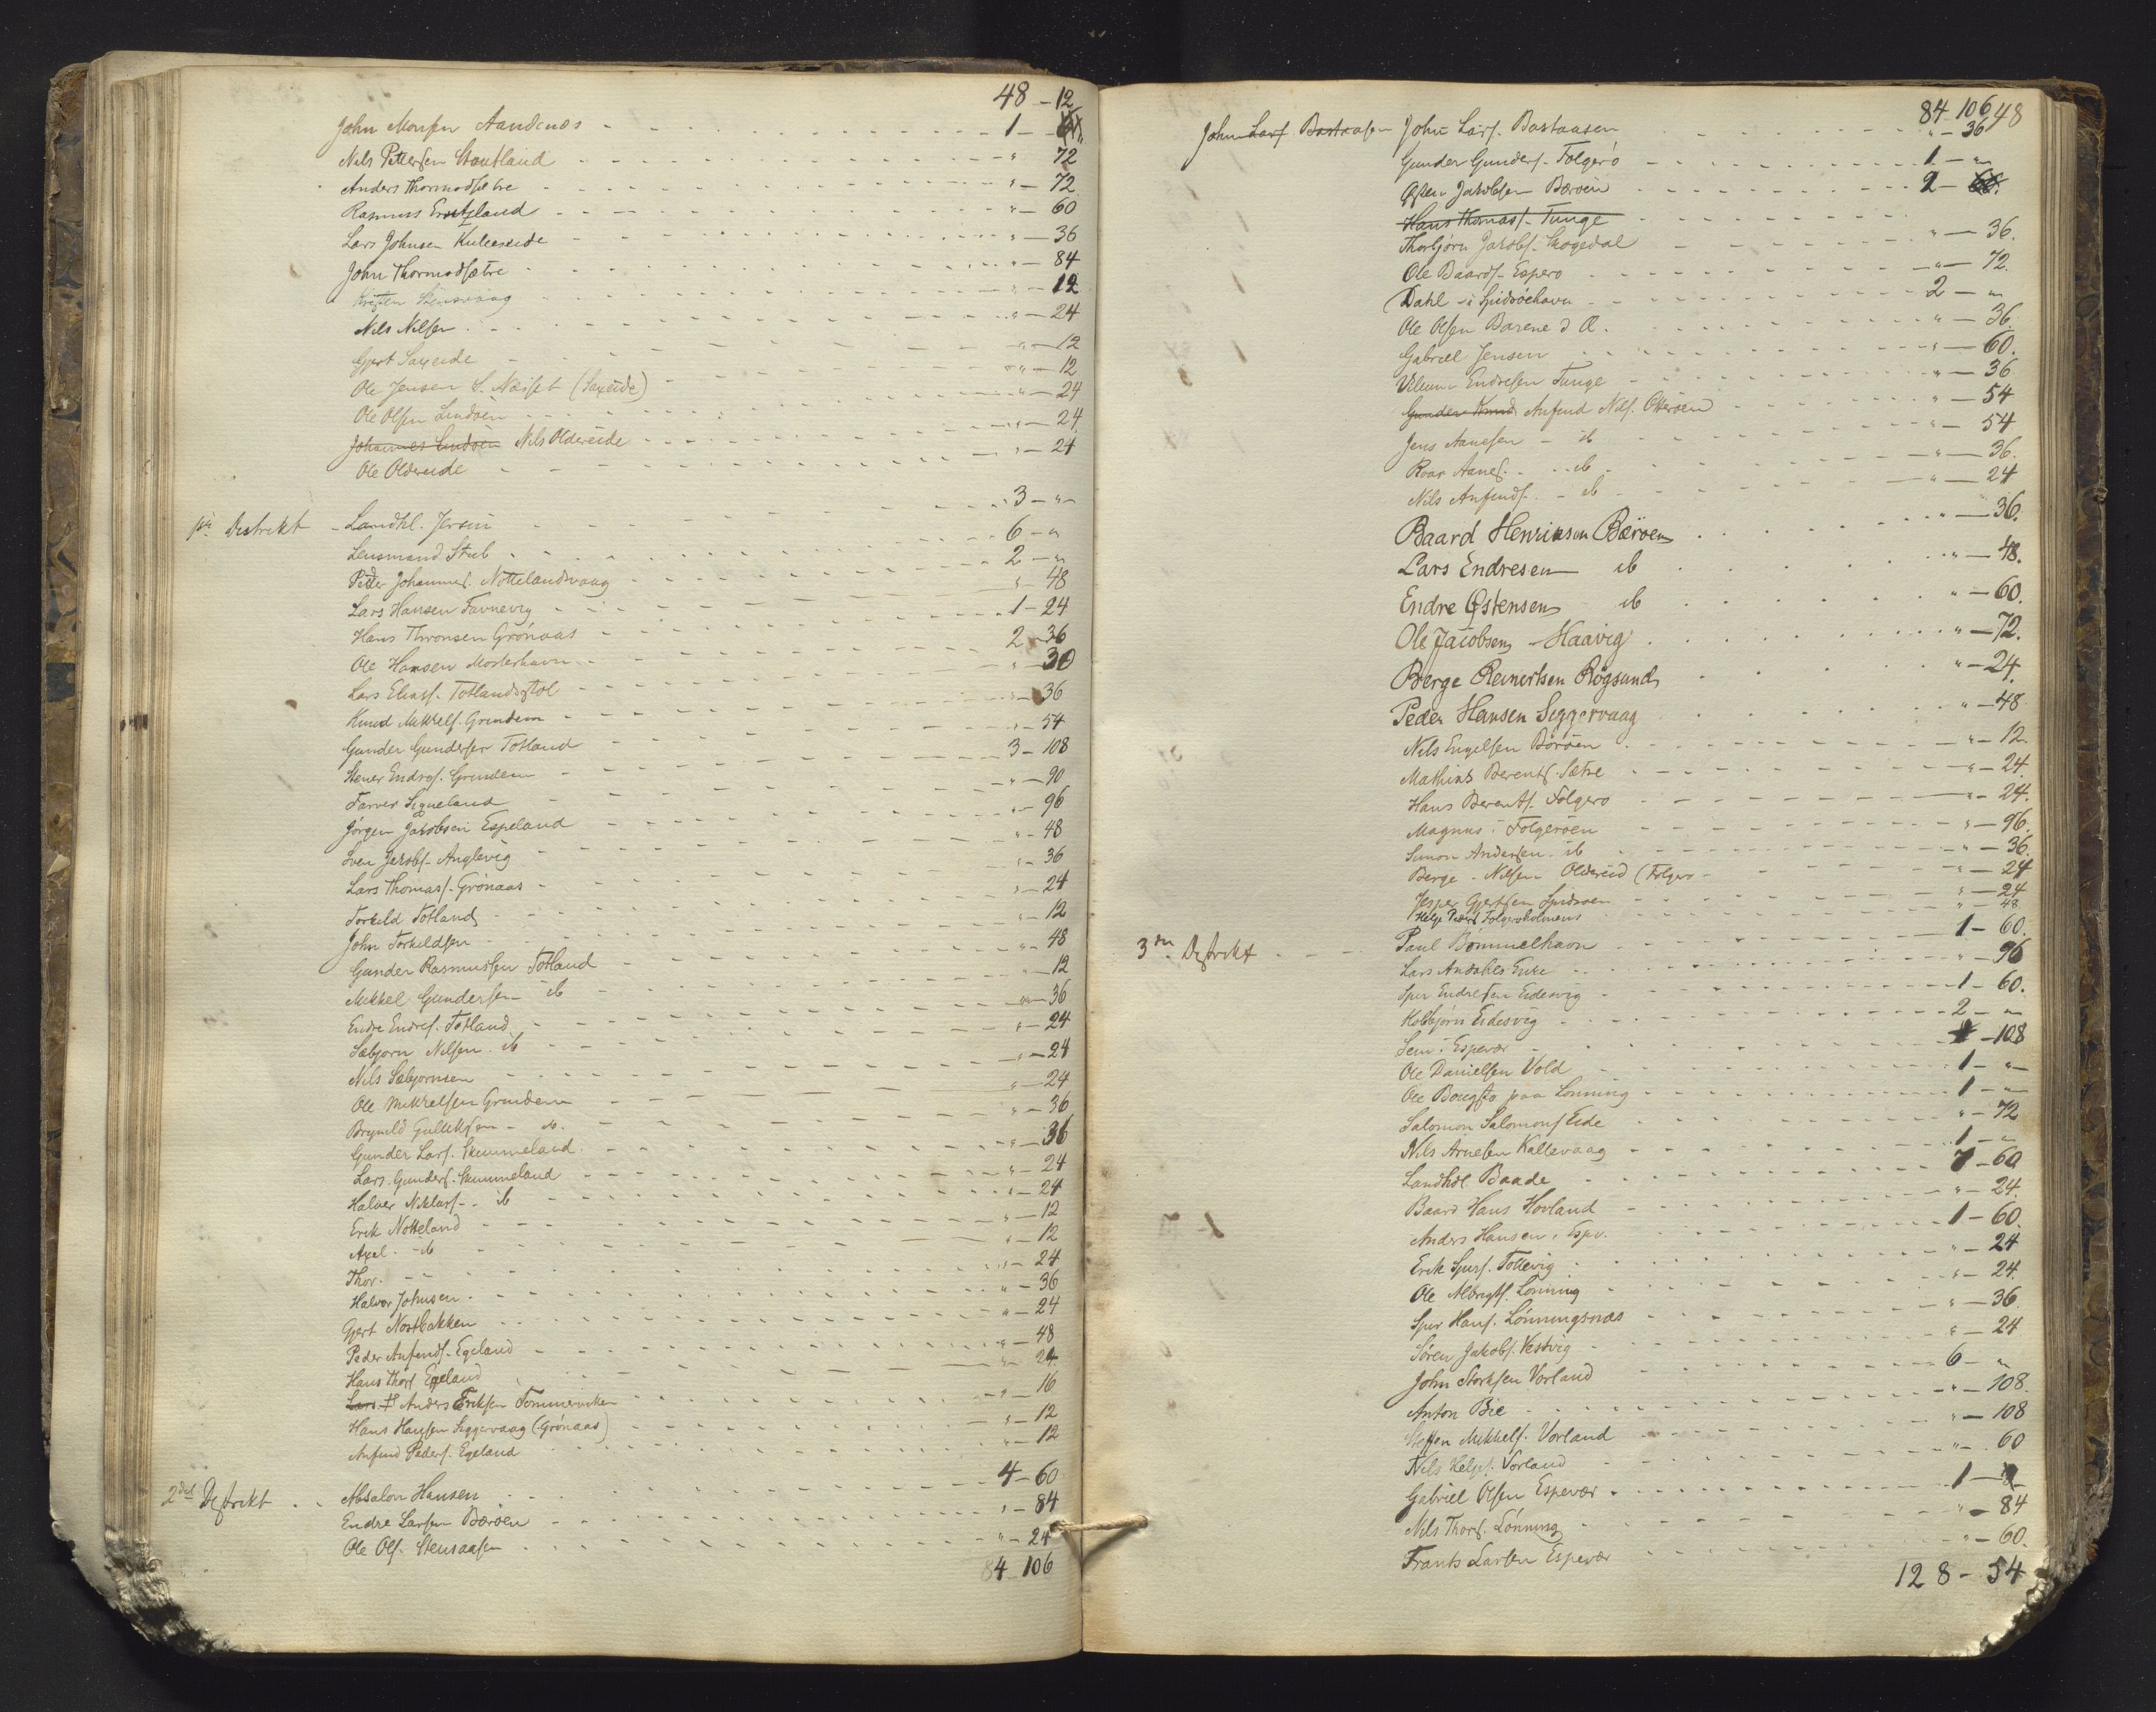 48 - 12
John Monsen Aandenæs - - - 1 -
Nils Pettersen Stoutland - - - " 72
Anders Thormodsætre - - - " - 72
Rasmus Eidsland - - - " - 60
Lars Johnsen Kuleseide - - - " - 36
John Thormodsætre - - - " - 84
Kristen Steinsvaag - - - " - 12
Nils Nilsen - - - " - 24
Gjert Saxeide - - - " - 12
Ole Jensen S. Næsset (Saxeide) - - - " - 12
Ole Olsen Lindøen - - - " - 24
Johannes Lindøen Nils Oldereide - - - " - 24
Ole Oldereide - - - " - 24
1ste Distrikt - Landhl. Jersin - - - 3 - "
Lensmand Stub - - - 6 - "
Peder Johannes. Nottelandsvaag - - - 2 - "
Lars Hansen Favnevig - - - " - 48
Hans Thronsen Grønaas - - - 1 - 24
Ole Hansen Mosterhavn - - - 2 - 36
Lars Eliass. Totlandsstøl - - - " - 30
Knud Mikkels. Grindem - - - " - 36
Gunder Gundersen Totland - - - " - 54
Stener Endres. Grindem - - - 3 - 108
Farver Siqueland - - - " - 90
Jørgen Jakobsen Espeland - - - " - 96
Sven Jakobs. Anglevig - - - " - 48
Lars Thomass. Grønaas - - - " - 36
Torkild Totland - - - " - 24
John Torkildsen - - - " - 12
Gunder Rasmussen Totland - - - " - 48
Mikkel Gundersen ib - - - " - 12
Endre Endres. Totland - - - " - 36
Sæbjørn Nilsen ib - - - " - 24
Nils Sæbjørnsen - - - " - 24
Ole Mikkelsen Grindem - - - " - 24
Brynild Gulliksen - ib. - - - " - 36
Gunder Lars. Skummeland - - - " - 36
Lars Gunders. Skummeland - - - " - 24
Halvor Niklass. - ib - - - " - 24
Erik Notteland - - - " - 12
Axel - ib - - - " - 12
Thor - - - " - 24
Halvor Johnsen - - - " - 36
Gjert Nostbakken - - - " - 24
Peder Anfinds. Egeland - - - " - 48
Hans Thors. Egeland - - - " 24
Lars Anders Eriksen Tommervíken - - - " - 16
Hans Hansen Siggervaag (Grønaas) - - - " - 12
Anfind Peders. Egeland - - - " - 12
2det Distrikt - - Absalon Hansen - - - 4 - 60
Endre Larsen Børøen - - - " - 84
Ole Ols. Stensaasen - - - " - 24
84 - 106
84 - 106 48
John Lars. Bastaasen John Lars. Bastaasen - - - " - 36
Gunder Gunders. Folgerø - - - 1 - "
Østen Jakobsen Børøen - - - 2 - 60.
Hans Thomass. Tunge
Thorbjørn Jakobs. Skogedal - - - " - 36.
Ole Baards. Esperø - - - " - 72.
Dahl i Spidsøehavn - - - 2 - "
Ole Olsen Barene d. Æ. - - - " - 36.
Gabriel Jensen - - - " - 60.
Villum Endresen Tunge - - - " - 36
Gunder Knud Anfind Nils. Otterøen - - - " - 54
Jens Aanesen - ib - - - " - 54
Roar Aanes. - ib - - - " - 36.
Nils Anfinds. - ib - - - " - 24
Baard Henriksen Bærøen - - - " - 36.
Lars Endresen ib - - - " - 48.
Endre Østensen ib - - - " - 60.
Ole Jacobsen Haavig - - - " - 72.
Berge Reinertsen Røgsund - - - " - 24.
Peder Hansen Siggervaag - - - " - 48
Nils Engelsen Børøen - - - " - 12.
Mathias Berents. Sætre - - - " - 24.
Hans Berents. Folgerø - - - " - 24.
Magnus i Folgerøen - - - " - 96.
Simon Andersen ib - - - " - 36.
Berge Nilsen Oldereid (Folgerø - - - " - 24
Jesper Gjertsen Spidsøen - - - " - 24
Helge Peders. Folgerøholmene - - - " - 48
3die Distrikt - - - Paul Bømmelhavn - - - 1 - 60.
Lars Andahls Enke - - - " - 96
Sjur Endresen Eidesvig - - - 1 - 60.
Kolbjørn Eidesvig - - - 2 - "
Sem i Espevær - - - - 108
Ole Danielsen Vold - - - 1 - "
Ole Bongsto paa Lønning - - - 1 - "
Salomon Salomons. Eide - - - " - 72
Nils Arnesen Kallevaag - - - 1 - "
Landhdl. Baade - - - 7 - 60
Baard Hans Hovland - - - " - 24.
Anders Hansen i Espv. - - - 1 - 60.
Erik Sjurs. Tollevig - - - " - 24
Ole Albregts. Lønning - - - " - 24.
Sjur Hans. Lønningsnæs - - - " - 36.
Søren Jakobs. Vestvig - - - " - 24
John Storksen Vorland - - - 6 - "
Anton Bie - - - " - 108.
Steffen Mikkels. Vorland - - - " - 108
Nils Helges. Vorland - - - " - 60
Gabriel Olsen Espevær - - - 1 -
Nils Thors. Lønning - - - " - 84
Frants Larsen Espevær - - - " - 60.
128 - 54